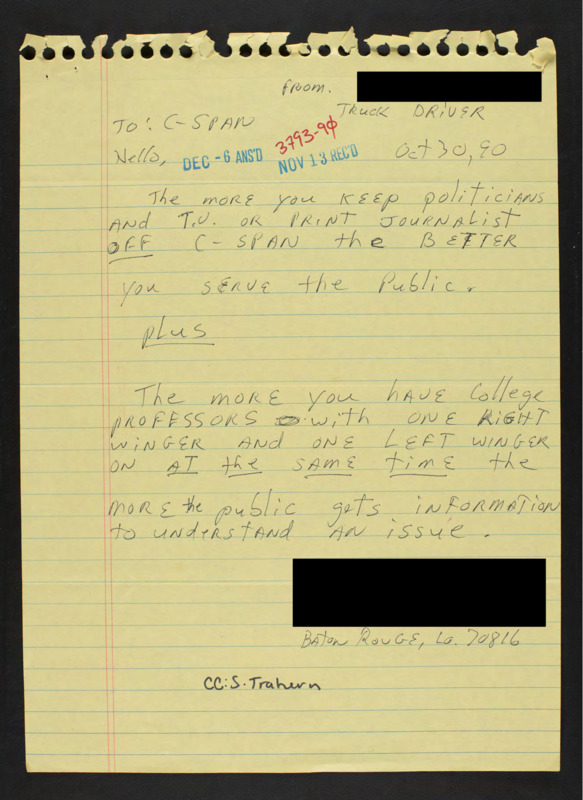 From.
TRUCK DRIVER
To: C-SPAN
3793-90
Hello, DEC - 6 ANS'D NOV 13 REC'D Oct 30, 90
The more you KEEP politicians
AND T.V. OR PRINT JOURNALIST
OFF C-SPAN the BETTER
you SERVE the Public.
plus
The MORE you HAVE College
PROFESSORS with ONE RIGHT
WINGER AND ONE LEFT WINGER
ON AT the SAME time the
MORE the public gets INFORMATION
to UNDERSTAND AN issue.
BATON ROUGE, La. 70816
CC: S. Trahern